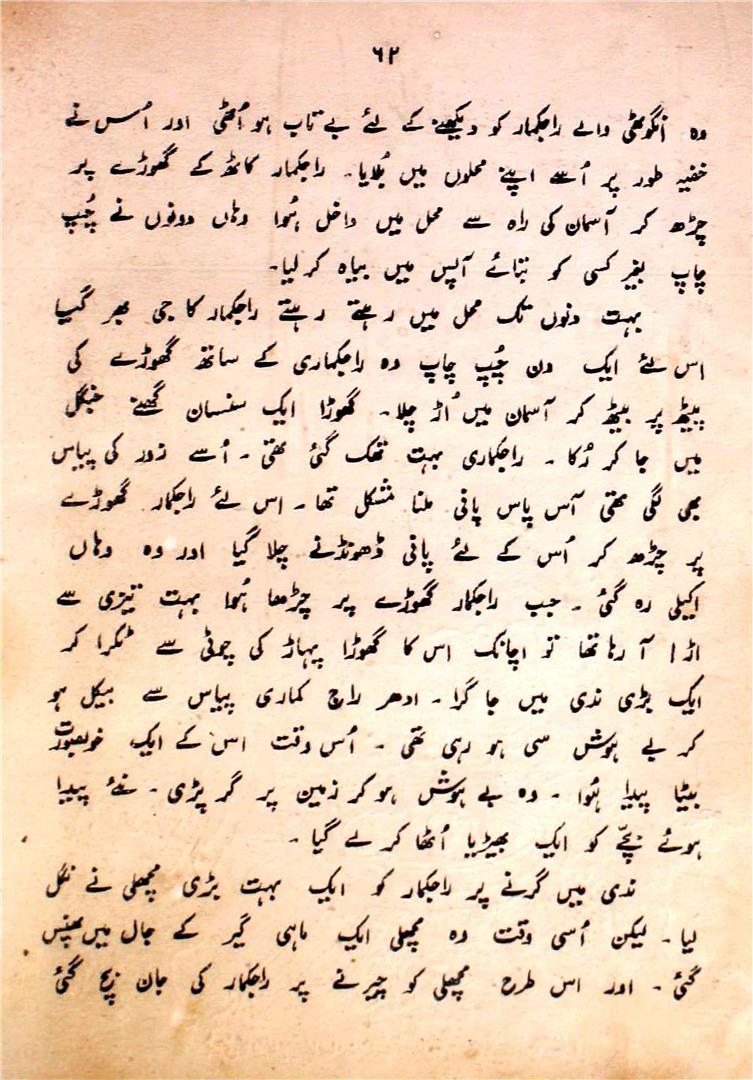 ۶۲
وہ انگوٹھی والے راجکمار کو دیکھنے کے لئے بے تاب ہو اُٹھی اور اُس نے
خفیہ طور پر اُسے اپنے محلوں میں بُلایا۔ راجکمار کاٹھ کے گھوڑے پر
چڑھ کر آسمان کی راہ سے محل میں داخل ہُوا وہاں دونوں نے چُپ
چاپ بغیر کسی کو بتائے آپس میں بیاہ کر لیا۔
بہت دنوں تک محل میں رہتے رہتے راجکمار کا جی بھر گیا
اس لئے ایک دن چُپ چاپ وہ راجکماری کے ساتھ گھوڑے کی
پیٹھ پر بیٹھ کر آسمان میں اُڑ چلا۔ گھوڑا ایک سنسان گھنے جنگل
میں جا کر رُکا۔ راجکماری بہت تھک گئی تھی۔ اُسے زور کی پیاس
بھی لگی تھی آس پاس پانی ملنا مشکل تھا۔ اس لئے راجکمار گھوڑے
پر چڑھ کر اُس کے لئے پانی ڈھونڈنے چلا گیا اور وہ وہاں
اکیلی رہ گئی۔ جب راجکمار گھوڑے پر چڑھا ہُوا بہت تیزی سے
اڑا آ رہا تھا تو اچانک اس کا گھوڑا پہاڑ کی چوٹی سے ٹکرا کر
ایک بڑی ندی میں جا گرا۔ ادھر راج کماری پیاس سے بیکل ہو
کر بے ہوش سی ہو رہی تھی۔ اُس وقت اس کے ایک خوبصورت
بیٹا پیدا ہُوا۔ وہ بے ہوش ہو کر زمین پر گر پڑی۔ نئے پیدا
ہوئے بچّے کو ایک بھیڑیا اُٹھا کر لے گیا۔
ندی میں گرنے پر راجکمار کو ایک بہت بڑی مچھلی نے نگل
لیا۔ لیکن اُسی وقت وہ مچھلی ایک ماہی گیر کے جال میں پھنس
گئی۔ اور اس طرح مچھلی کو چیرنے پر راجکمار کی جان بچ گئی